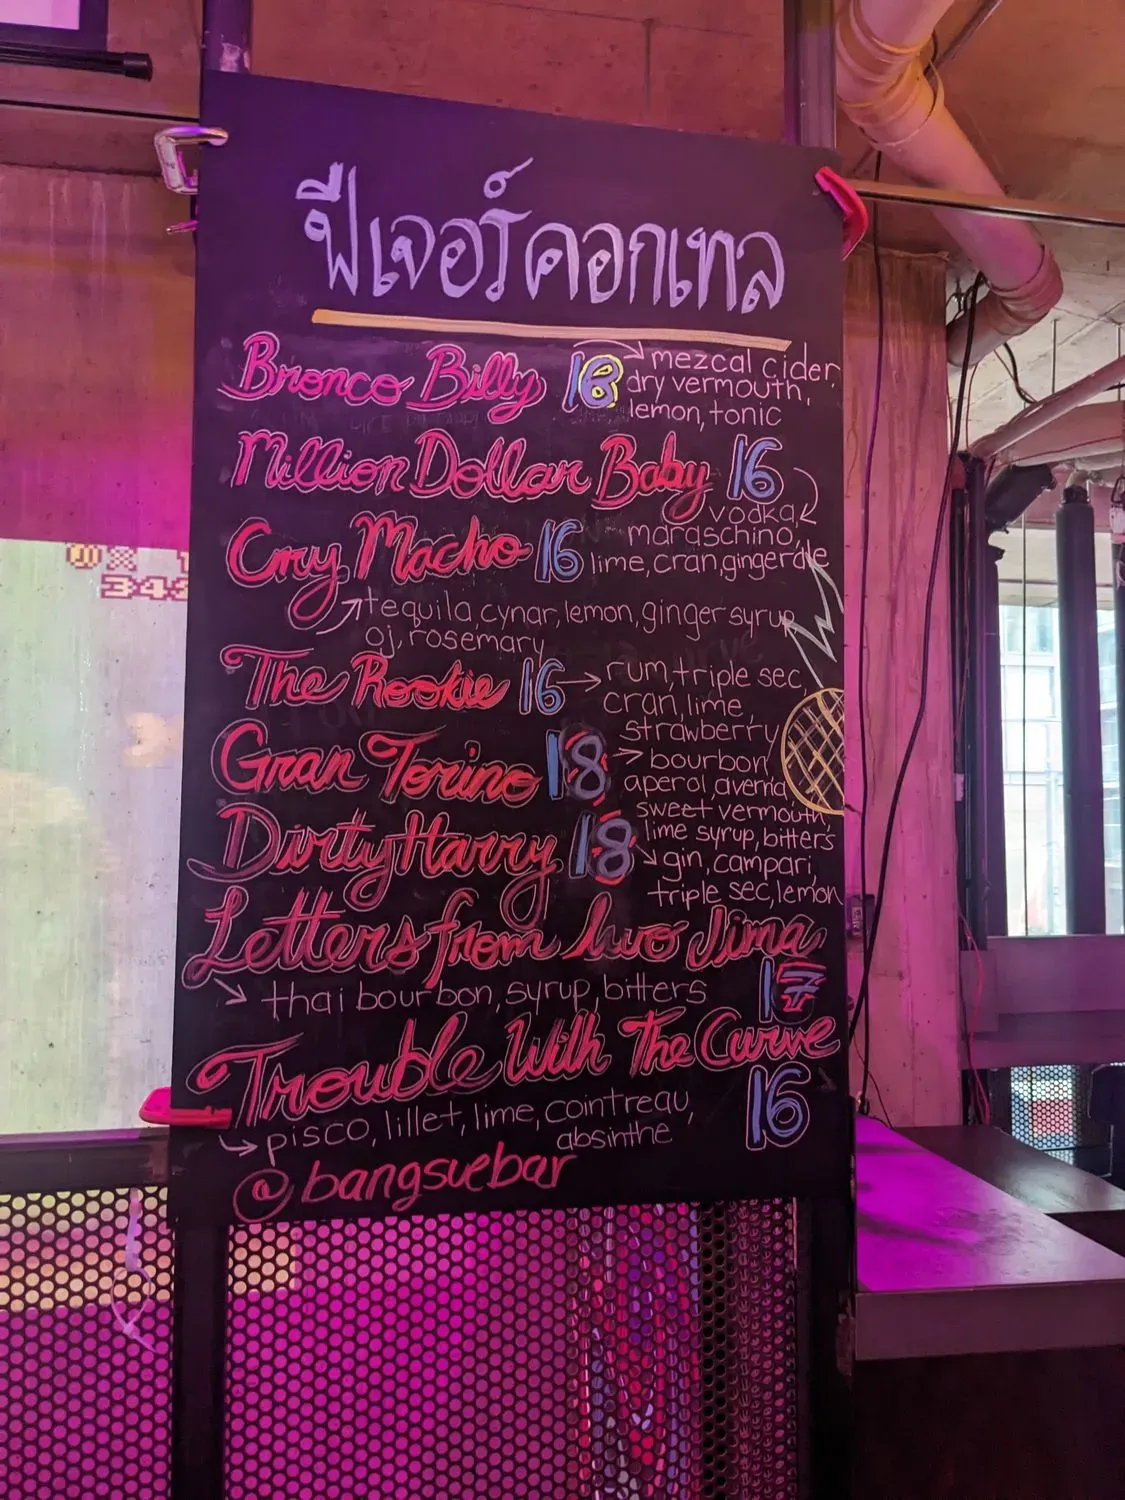 ฟีเจอร์คอกเทล
Bronco Billy
mezcal cider,
dry vermouth,
lemon, tonic
Million Dollar Baby 16
vodka,
maraschino,
lime, cran, gingerale
Cry Macho 16
tequila, cynar, lemon, ginger syrup
oj, rosemary
The Rookie 16
rum, triple sec
cran, lime,
strawberry
Gran Torino 18
bourbon
aperol, averna
sweet vermouth,
lime syrup, bitters
Dirty Harry 18
gin, campari,
triple sec, lemon
Letters from Iwo Jima
thai bourbon, syrup, bitters 17
Trouble With The Curve
pisco, lillet, lime, cointreau,
absinthe 16
@bangsuebar